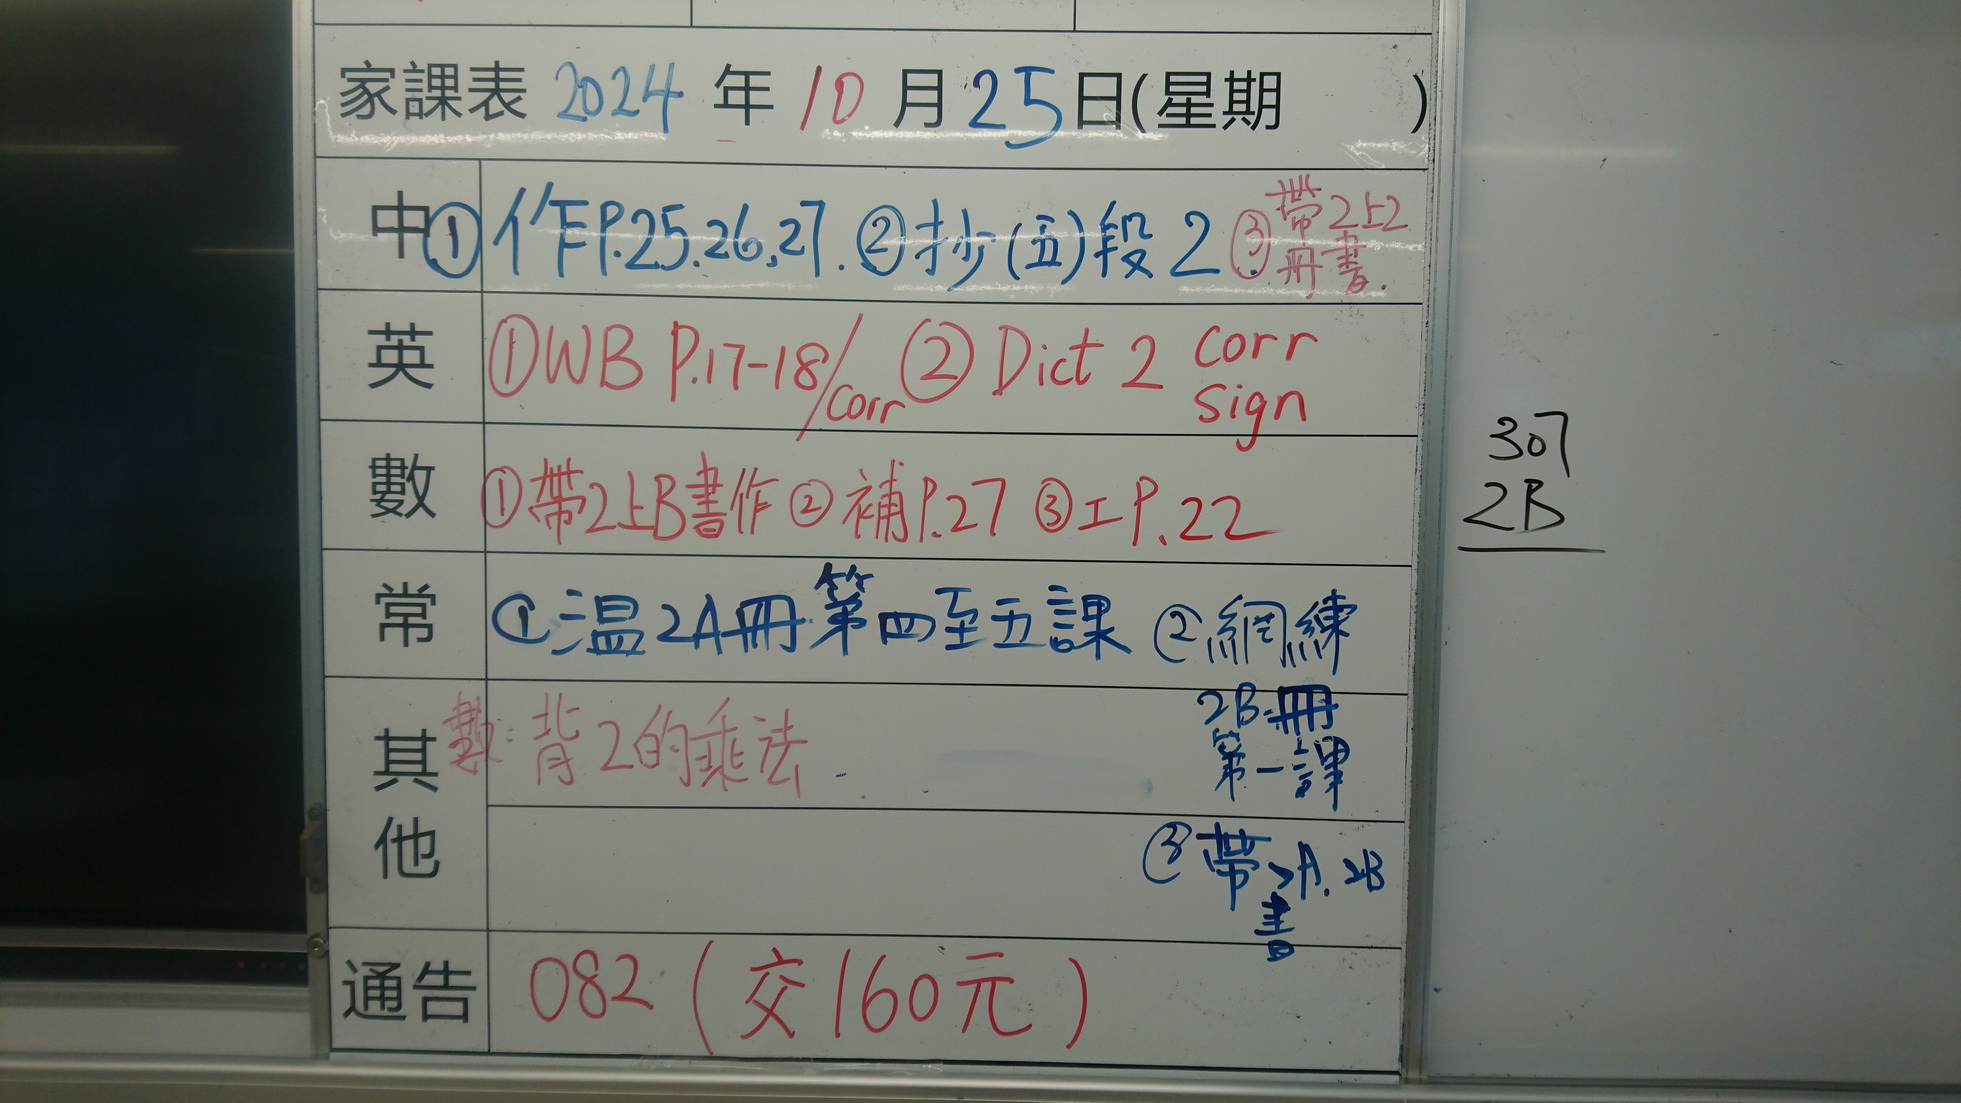 家課表 2024 年 10 月 25 日(星期 )
中 ① 作P.25.26,27. ② 抄(五)段2 ③ 帶2上2
冊書.
英 ① WB P.17-18/corr ② Dict 2 corr
sign
數 ① 帶2上B書作 ② 補P.27 ③ 工P.22
常 ① 温2A冊第四至五課 ② 網練
2B冊
第一課
③ 帶2A.2B
書
其他 數: 背2的乘法.
通告 082 (交160元)
307
2B